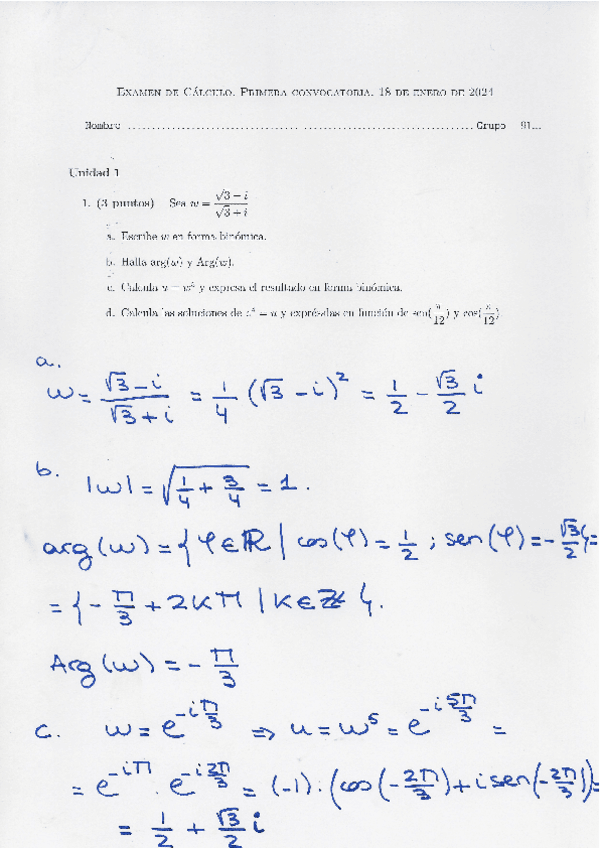 EXAMEN DE CÁLCULO. PRIMERA CONVOCATORIA. 18 DE ENERO DE 2024
Nombre ........................................................................ Grupo 91...
Unidad 1
1. (3 puntos) Sea w = (√3 − i)/(√3 + i)
a. Escribe w en forma binómica.
b. Halla arg(w) y Arg(w).
c. Calcula u = w⁵ y expresa el resultado en forma binómica.
d. Calcula las soluciones de z⁴ = u y exprésalas en función de sen(π/12) y cos(π/12)
a.
w = (√3 − i)/(√3 + i) = 1/4 (√3 − i)² = 1/2 − √3/2 i
b.
|w| = √(1/4 + 3/4) = 1.
arg(w) = {φ ∈ ℝ | cos(φ) = 1/2 ; sen(φ) = −√3/2} =
= {−π/3 + 2kπ | k ∈ ℤ}.
Arg(w) = −π/3
c. w = e^(−iπ/3) ⇒ u = w⁵ = e^(−i5π/3) =
= e^(−iπ) · e^(−i2π/3) = (−1) · (cos(−2π/3) + i sen(−2π/3)) =
= 1/2 + √3/2 i